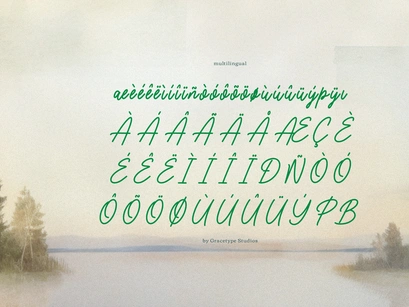 multilingual
æèéêëìíîïñòóôõöøùúûüýþÿı
ÀÁÂÃÄÅÆÇÈ
ÉÊËÌÍÎÏÐÑÒÓ
ÔÕÖØÙÚÛÜÝÞß
by Gracetype Studios